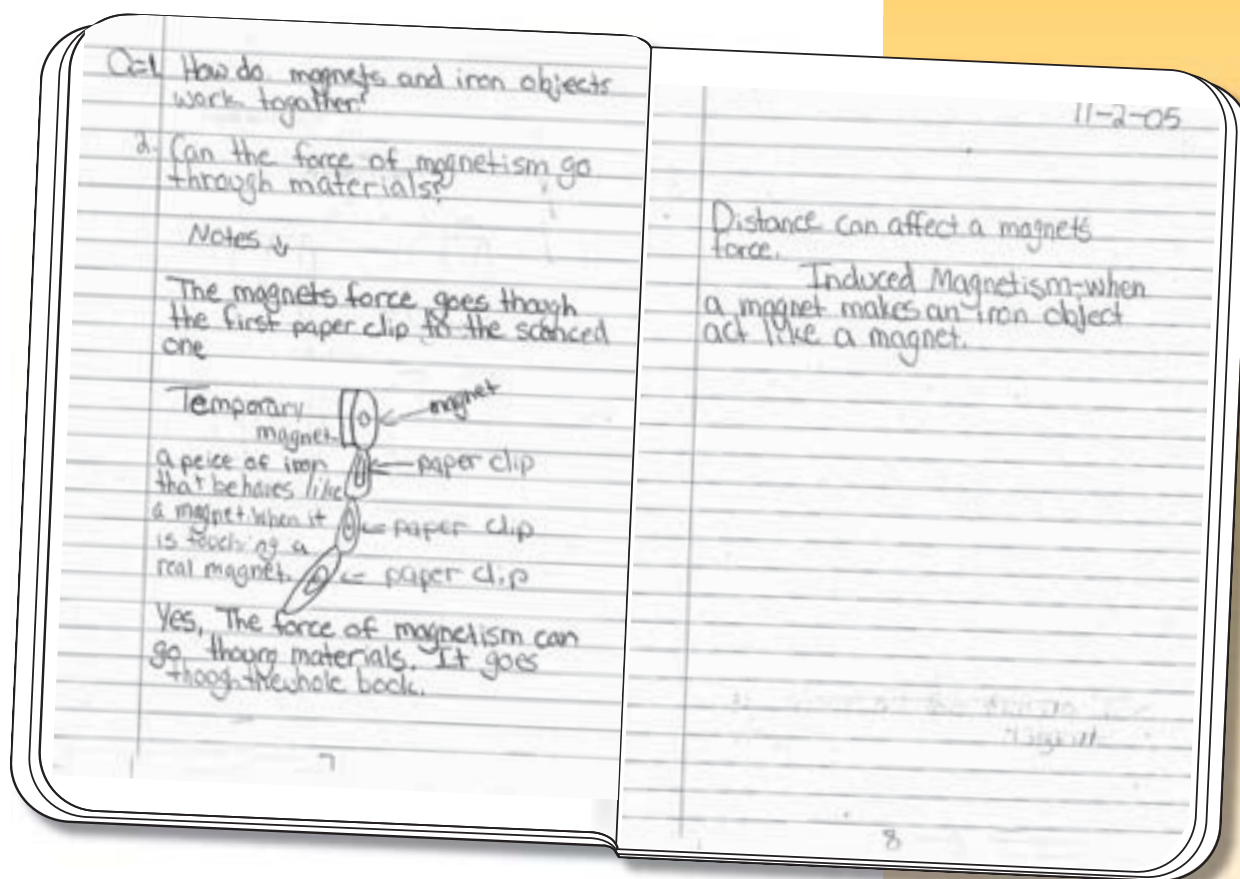 Q=1 How do magnets and iron objects
work togather?
2. Can the force of magnetism go
through materials?
Notes ↓
The magnets force goes though
the first paper clip to the sconced
one
Temporary
magnet.
a peice of iron
that behaves like
a magnet when it
is touching a
real magnet.
magnet
paper clip
paper clip
paper clip
Yes, The force of magnetism can
go materials. It goes
though the whole book.
7
11-2-05
Distance can affect a magnets
force.
Induced Magnetism-when
a magnet makes an iron object
act like a magnet.
8